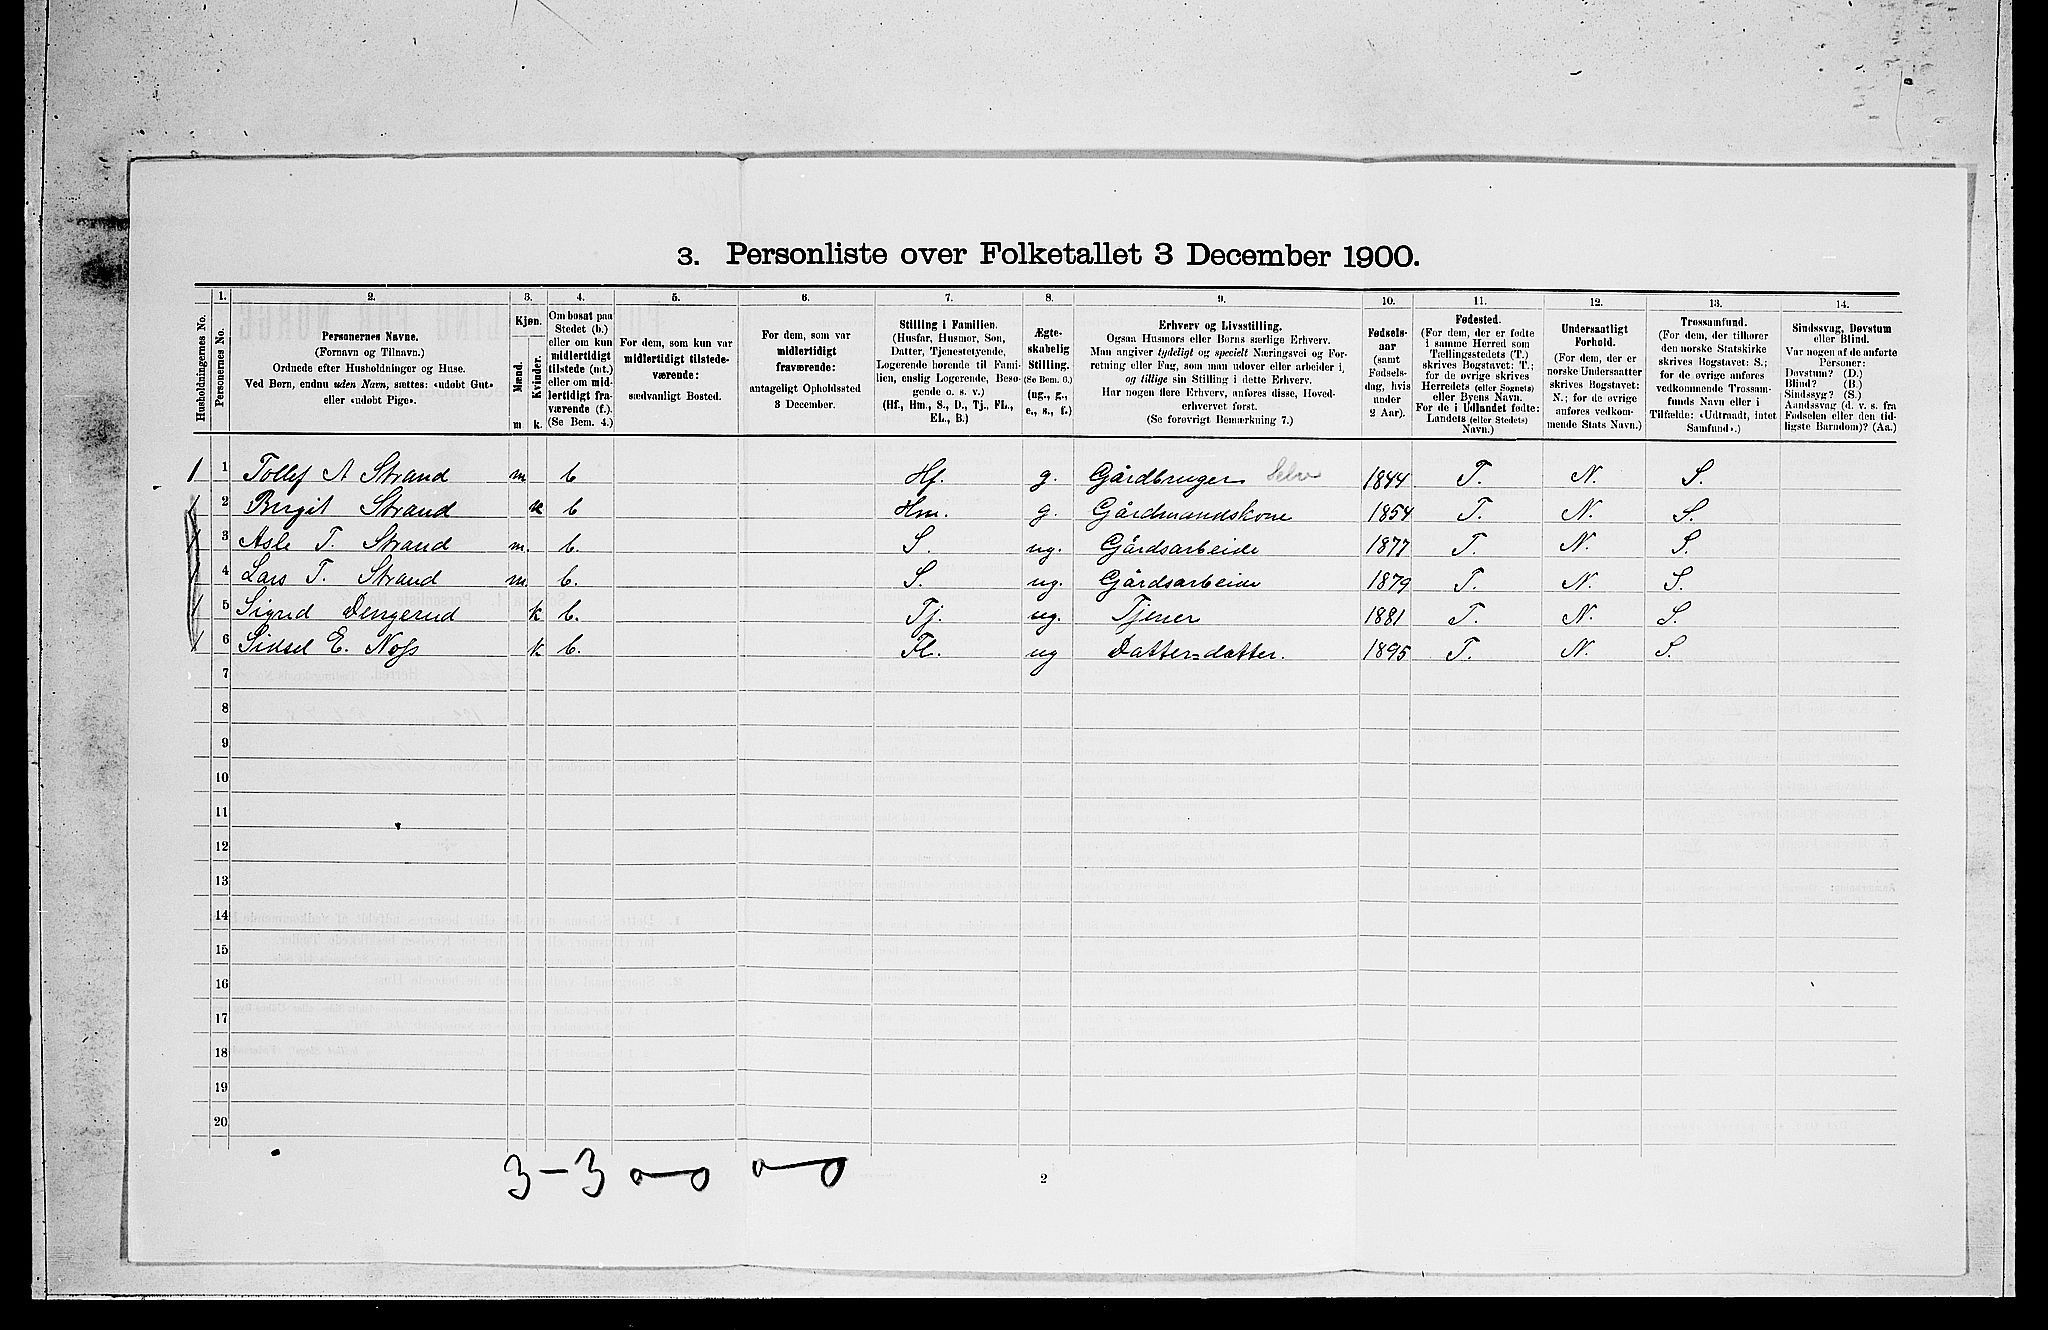 3. Personliste over Folketallet 3 December 1900.
Husholdningernes No.
1.
Personernes No.
2.
Personernes Navne.
(Fornavn og Tilnavn.)
Ordnede efter Husholdninger og Huse.
Ved Børn, endnu uden Navn, sættes: «udøbt Gut»
eller «udøbt Pige».
3.
Kjøn.
Mænd.
Kvinder.
m k.
4.
Om bosat paa
Stedet (b.)
eller om kun
midlertidigt
tilstede (mt.)
eller om mid-
lertidigt fra-
værende (f.).
(Se Bem. 4.)
5.
For dem, som kun var
midlertidigt tilstede-
værende:
sædvanligt Bosted.
6.
For dem, som var
midlertidigt
fraværende:
antageligt Opholdssted
3 December.
7.
Stilling i Familien.
(Husfar, Husmor, Søn,
Datter, Tjenestetyende,
Logerende hørende til Fami-
lien, enslig Logerende, Besø-
gende o. s. v.)
(Hf., Hm., S., D., Tj., FL.,
EL., B.)
8.
Ægte-
skabelig
Stilling.
(Se Bem. 6.)
(ug., g.,
e., s., f.)
9.
Erhverv og Livsstilling.
Ogsaa Husmors eller Børns særlige Erhverv.
Man angiver tydeligt og specielt Næringsvei og For-
retning eller Fag, som man udøver eller arbeider i,
og tillige sin Stilling i dette Erhverv.
Har nogen flere Erhverv, anføres disse, Hoved-
erhvervet først.
(Se forøvrigt Bemærkning 7.)
10.
Fødsels-
aar
(samt
Fødsels-
dag, hvis
under
2 Aar).
11.
Fødested.
(For dem, der er fødte
i samme Herred som
Tællingsstedets (T.)
skrives Bogstavet: T.;
for de øvrige skrives
Herredets (eller Sognets)
eller Byens Navn.
For de i Udlandet fødte:
Landets (eller Stedets)
Navn.)
12.
Undersaatligt
Forhold.
(For dem, der er
norske Undersaatter
skrives Bogstavet:
N.; for de øvrige
anføres vedkom-
mende Stats Navn.)
13.
Trossamfund.
(For dem, der tilhører
den norske Statskirke
skrives Bogstavet: S.;
for de øvrige anføres
vedkommende Trossam-
funds Navn eller i
Tilfælde: «Udtraadt, intet
Samfund».)
14.
Sindssvag, Døvstum
eller Blind.
Var nogen af de anførte
Personer:
Døvstum? (D.)
Blind? (B.)
Sindssyg? (S.)
Aandssvag (d. v. s. fra
Fødselen eller den tid-
ligste Barndom)? (Aa.)
1 1 Tollef A Strand m. b Hf. g. Gårdbruger Selv 1844 T. N. S.
2 Birgit Strand k b Hm. g. Gårdmandskone 1854 T. N. S.
3 Asle T. Strand m. b. S. ug. Gårdsarbeide 1877 T. N. S.
4 Lars T. Strand m. b. S. ug. Gårdsarbeide 1879 T. N. S.
5 Sigrid Dengerud k b. Tj. ug. Tjener 1881 T. N. S.
6 Sidsel E. Noss k b. Fl. ug Datter=datter. 1895 T. N. S.
7
8
9
10
11
12
13
14
15
16
17
18
19
20
3-3
2